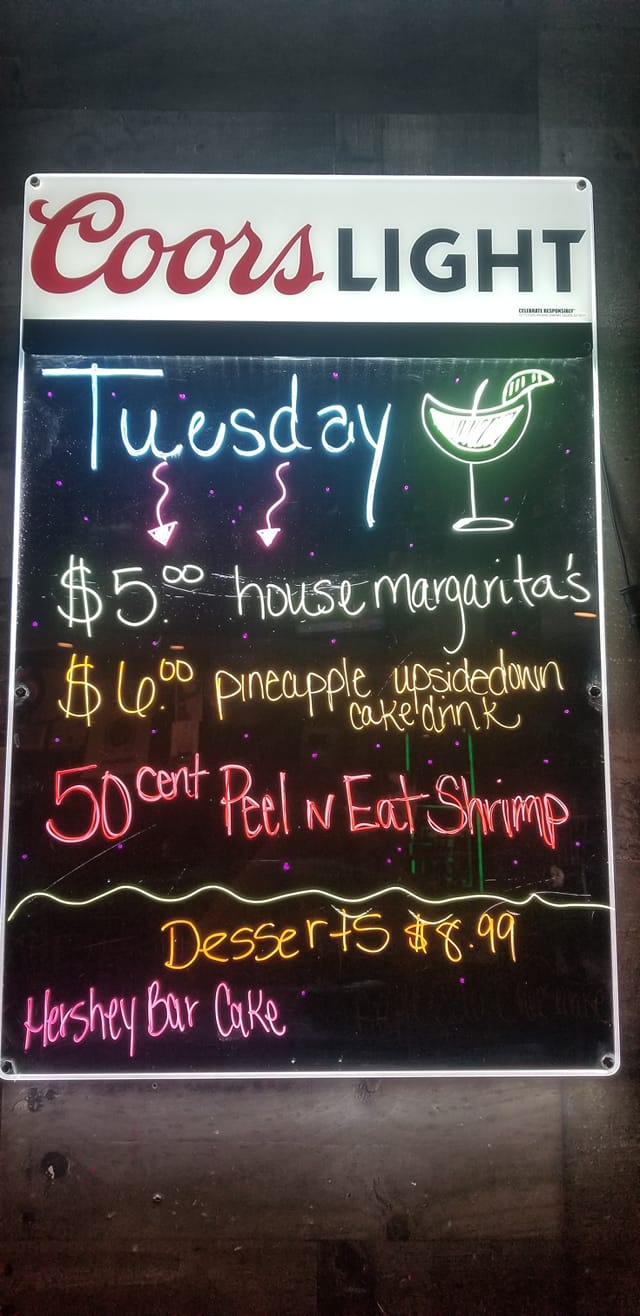 Coors LIGHT
CELEBRATE RESPONSIBLY
Tuesday
$5.00 house margarita's
$6.00 pineapple upsidedown
cake drink
50 cent Peel N Eat Shrimp
Desserts $8.99
Hershey Bar Cake